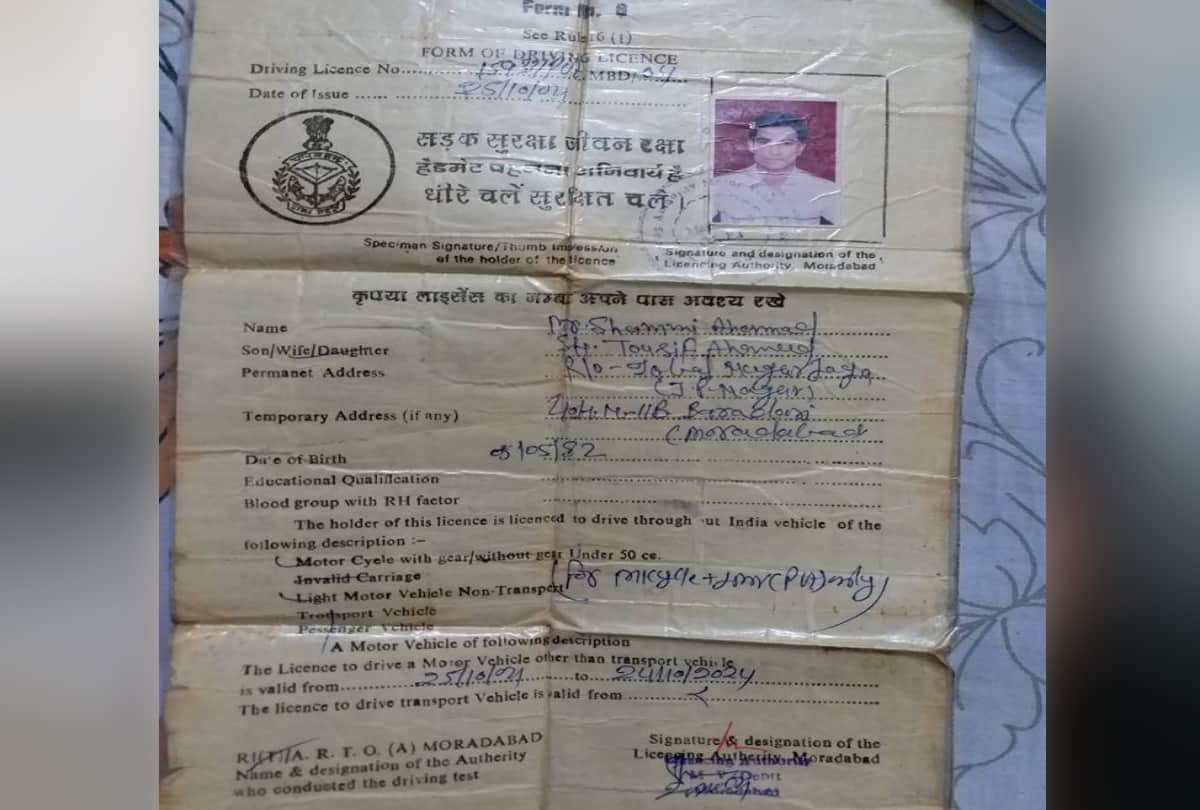 Form
See Rule 6 (1)
FORM OF DRIVING LICENCE
Driving Licence No. MBD/04
Date of Issue ...... 25/10/04
सड़क सुरक्षा जीवन रक्षा
हैडमेट पहनना अनिवार्य है
धीरे चलें सुरक्षित चलें।
Specman Signature/Thumb Impession
of the holder of the licence
Signature and designation of the
Licencing Authority, Moradabad
कृपया लाइसेंस का अपने पास अवश्य रखे
Name Mr. Shammi Ahemad
Son/Wife/Daugnter Tousif Ahemed
Permanet Address R/o - Nagar
(J.P. Nagar)
Temporary Address (if any)
(Moradabad
Date of Birth /05/82
Educational Qualification
Blood group with RH factor
The holder of this licence is licenced to drive through ut India vehicle of the
following description :—
Motor Cycle with gear/without gear Under 50 ce.
Invalid Carriage
Light Motor Vehicle Non-Transport
for M/cycle + LMV (Pvt) only
Tronsport Vehicle
Pessenger Vehicle
A Motor Vehicle of following description
The Licence to drive a Motor Vehicle other than transport vehicle
is valid from 25/10/04 to 24/10/2024
The licence to drive transport Vehicle is valid from
A. R. T. O. (A) MORADABAD
Name & designation of the Autherity
who conducted the driving test
Signature & designation of the
Licencing Autherity, Moradabad